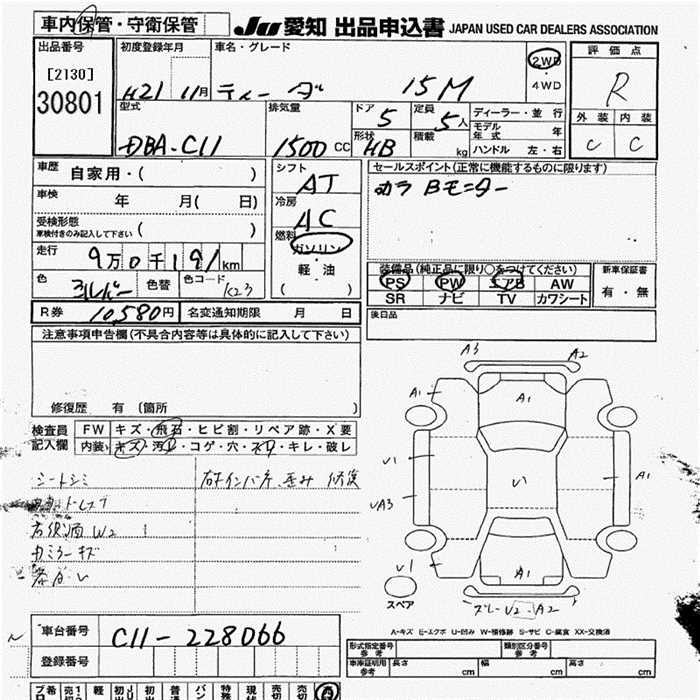 車内保管・守衛保管
JU 愛知 出品申込書 JAPAN USED CAR DEALERS ASSOCIATION
出品番号
[2130]
30801
初度登録年月
H21 11月
車名・グレード
ティーダ 15M
2WD
・4WD
評価点
R
外装 内装
C C
型式
DBA-C11
排気量
1500CC
ドア
5
定員
5人
形状
HB
積載
kg
ディーラー・並行
モデル年式 年
ハンドル 左・右
車歴 自家用・( )
車検 年 月( 日)
受検形態
車検付きのみ記入して下さい ( )
走行 9万0千191km
色 シルバー 色替 色コード K23
シフト
AT
冷房
AC
燃料
ガソリン
・
軽油
( )
セールスポイント(正常に機能するものに限ります)
カラーBモニター
装備品(純正品に限り○をつけてください)
PS PW エアB AW
SR ナビ TV カワシート
新車保証書
有・無
後日品
R券 10,580円 名変通知期限 月 日
注意事項申告欄(不具合内容等は具体的に記入して下さい)
修復歴 有〔箇所 〕
検査員
記入欄
FW キズ・飛石・ヒビ割・リペア跡・X要
内装 キズ・汚レ・コゲ・穴・スレ・キレ・破レ
シートシミ
右リヤ酒 W2
カミラーキズ
修復
A3 A2
A1 A1
U1 U1 A1
UA3
U1 A1
U2 A2
スペア
A-キズ E-エクボ U-凹み W-補修跡 S-サビ C-腐食 XX-交換済
車台番号 C11-228066
登録番号
形式指定番号
参考
類別区分番号
参考
車庫証明用
参考
長さ cm 幅 cm 高さ cm